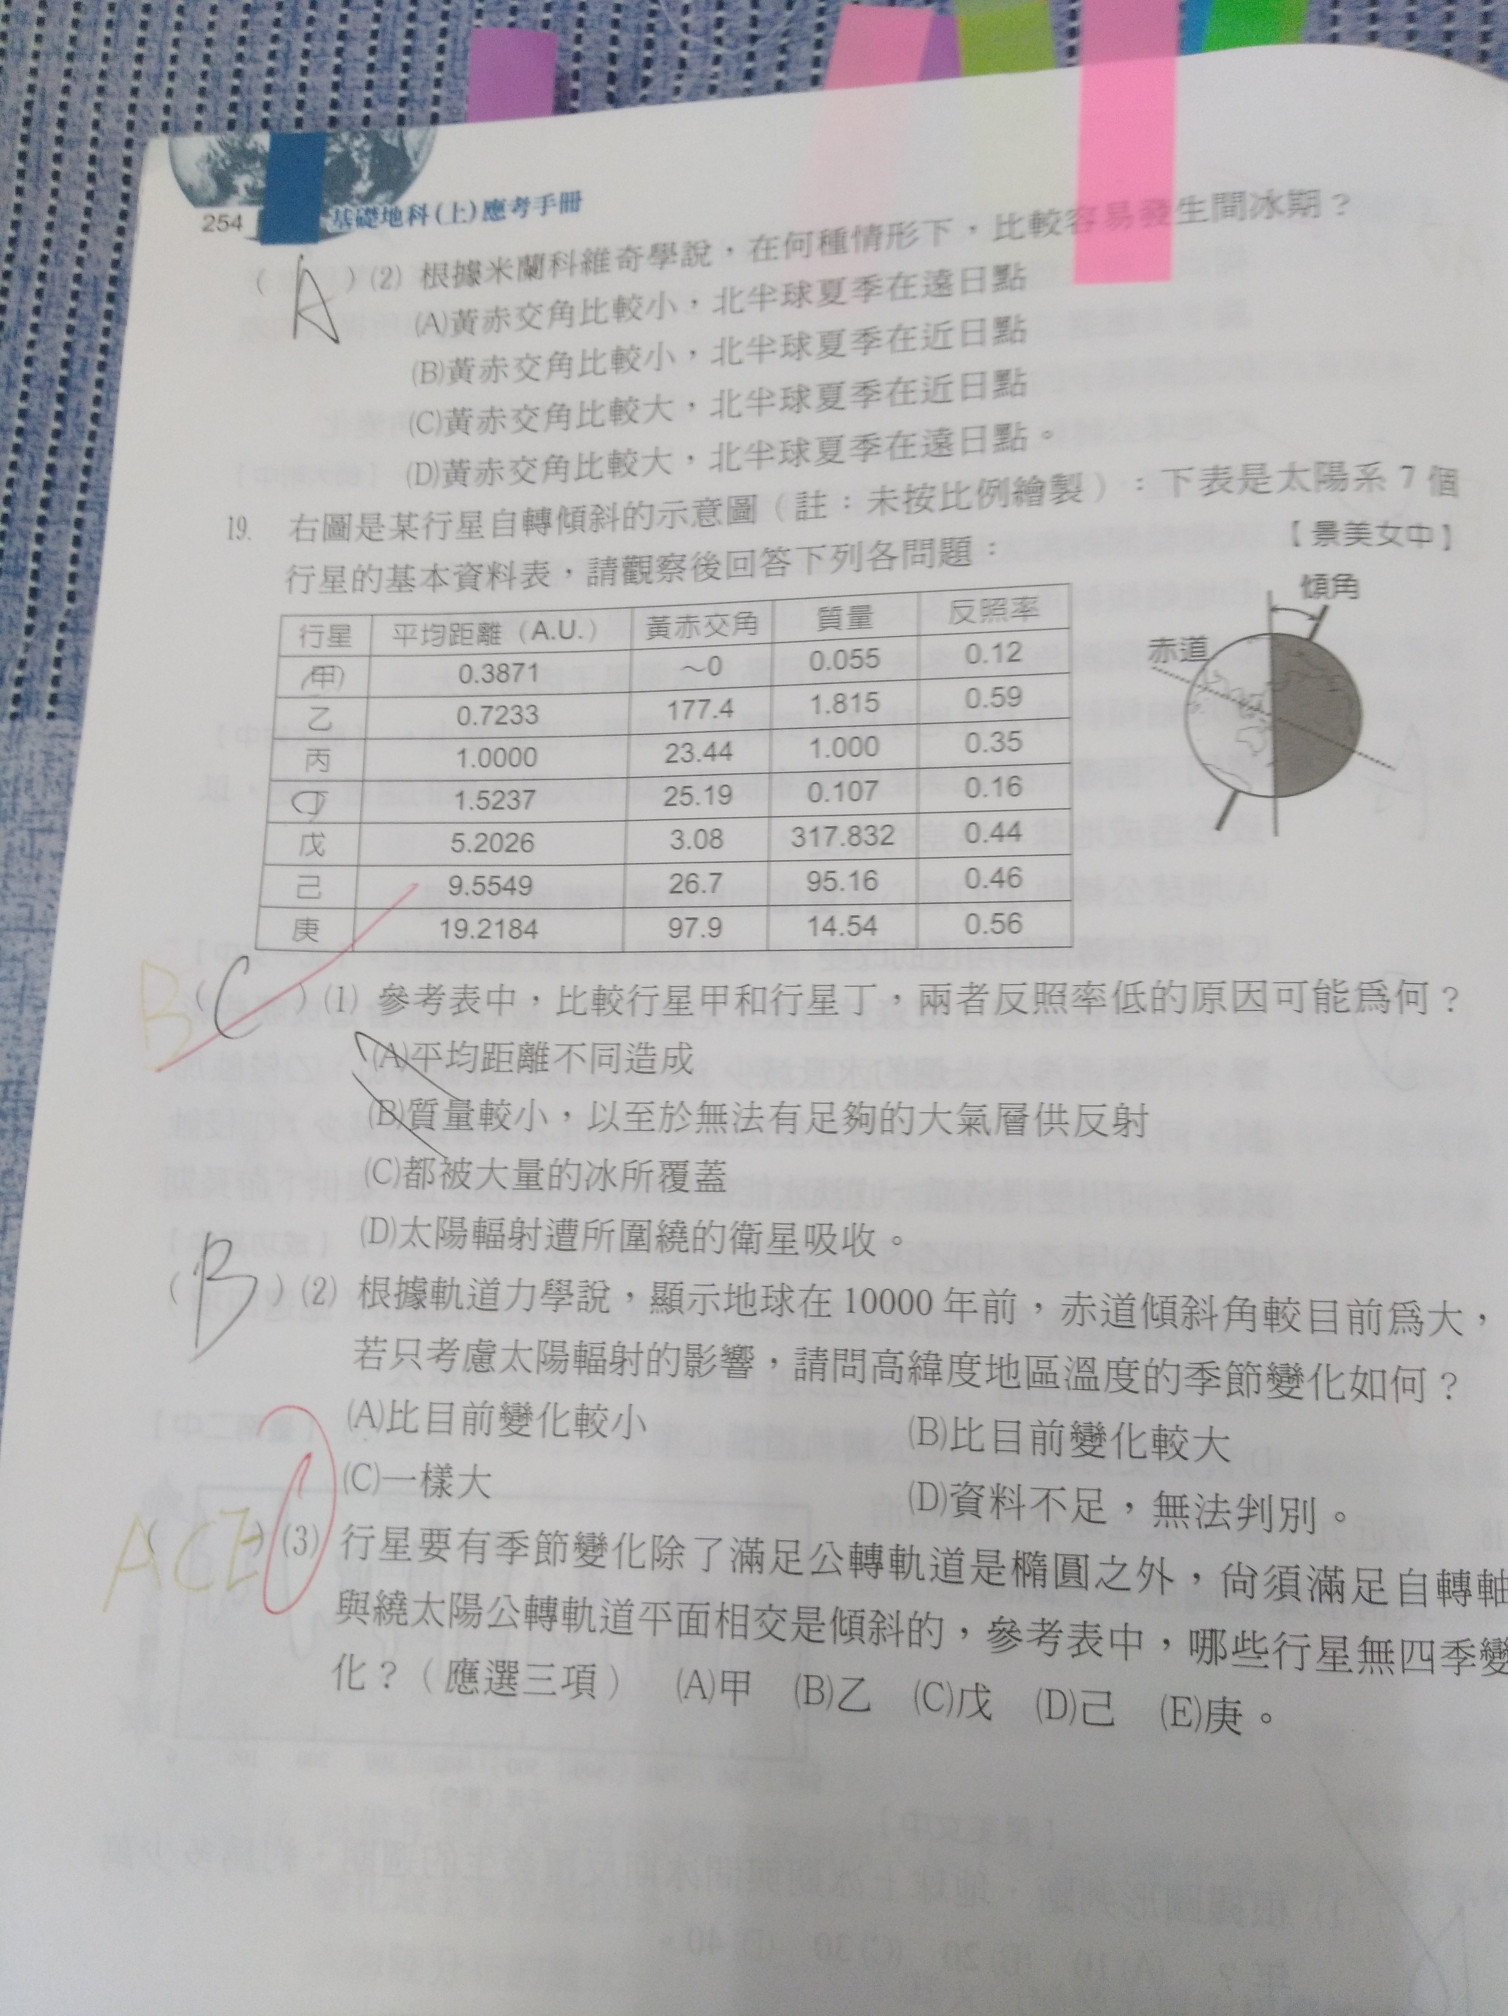 254
基礎地科(上)應考手冊
( A )(2) 根據米蘭科維奇學說，在何種情形下，比較容易發生間冰期？
(A)黃赤交角比較小，北半球夏季在遠日點
(B)黃赤交角比較小，北半球夏季在近日點
(C)黃赤交角比較大，北半球夏季在近日點
(D)黃赤交角比較大，北半球夏季在遠日點。
【景美女中】
19. 右圖是某行星自轉傾斜的示意圖（註：未按比例繪製）：下表是太陽系 7 個
行星的基本資料表，請觀察後回答下列各問題：
行星 平均距離（A.U.） 黃赤交角 質量 反照率
甲 0.3871 ～0 0.055 0.12
乙 0.7233 177.4 1.815 0.59
丙 1.0000 23.44 1.000 0.35
丁 1.5237 25.19 0.107 0.16
戊 5.2026 3.08 317.832 0.44
己 9.5549 26.7 95.16 0.46
庚 19.2184 97.9 14.54 0.56
傾角
赤道
B ( C )(1) 參考表中，比較行星甲和行星丁，兩者反照率低的原因可能爲何？
(A)平均距離不同造成
(B)質量較小，以至於無法有足夠的大氣層供反射
(C)都被大量的冰所覆蓋
(D)太陽輻射遭所圍繞的衛星吸收。
( B )(2) 根據軌道力學說，顯示地球在 10000 年前，赤道傾斜角較目前爲大，
若只考慮太陽輻射的影響，請問高緯度地區溫度的季節變化如何？
(A)比目前變化較小 (B)比目前變化較大
(C)一樣大 (D)資料不足，無法判別。
( ACE )(3) 行星要有季節變化除了滿足公轉軌道是橢圓之外，尙須滿足自轉軸
與繞太陽公轉軌道平面相交是傾斜的，參考表中，哪些行星無四季變
化？（應選三項） (A)甲 (B)乙 (C)戊 (D)己 (E)庚。